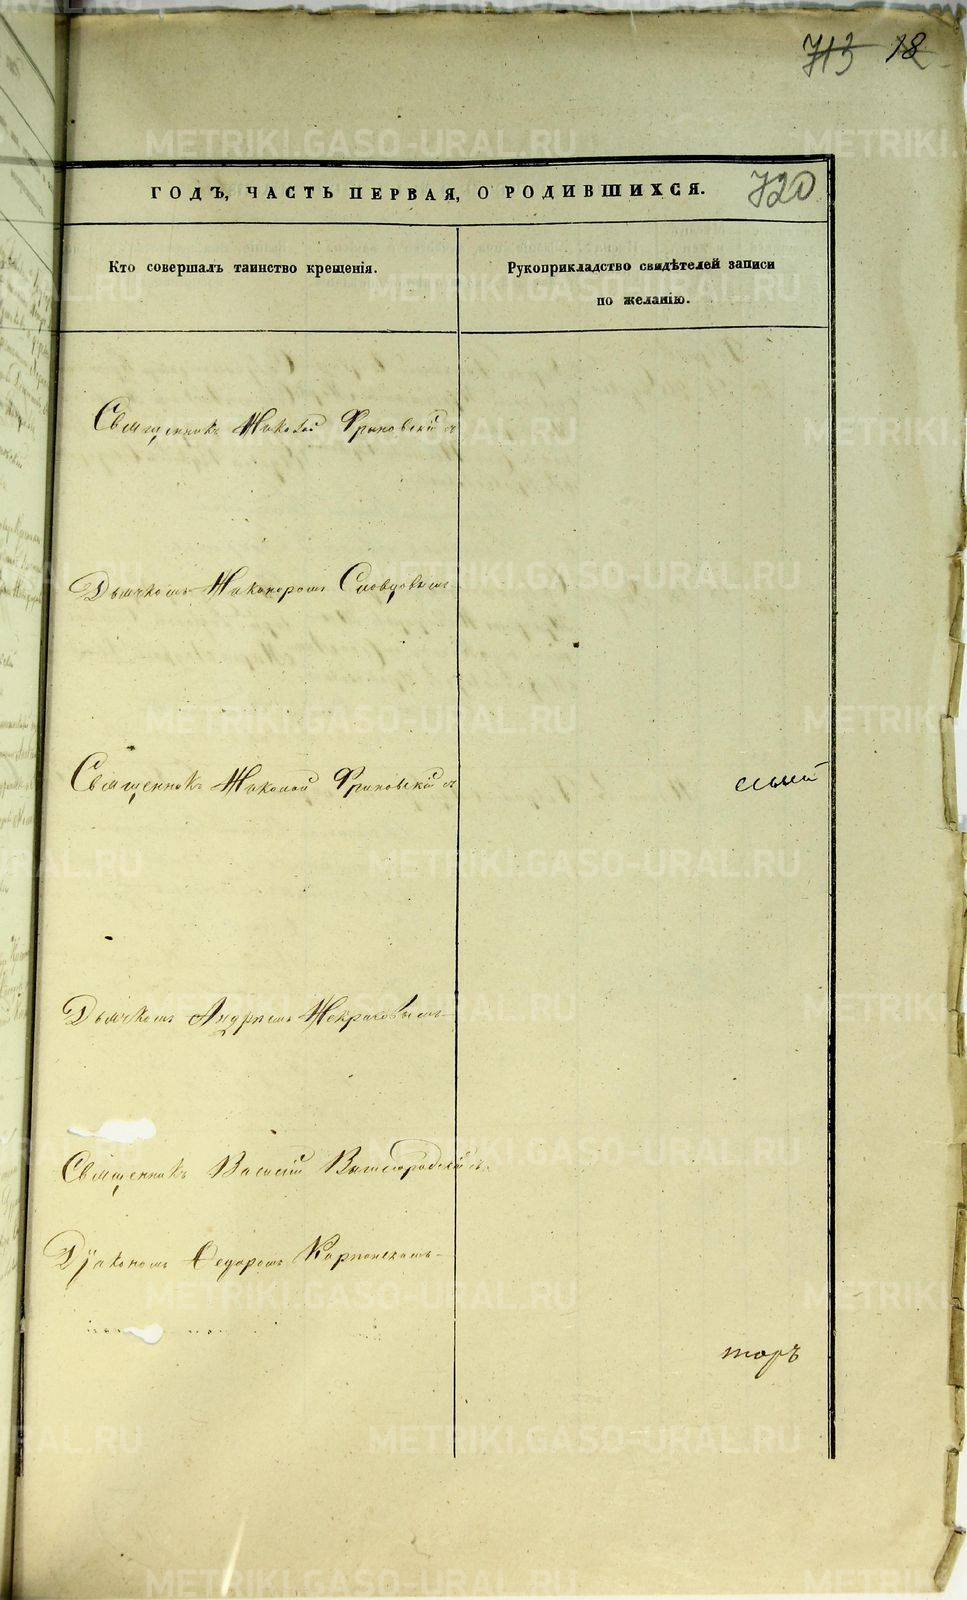 713 18
ГОДЪ, ЧАСТЬ ПЕРВАЯ, О РОДИВШИХСЯ. 720
Кто совершалъ таинство крещенія.
Рукоприкладство свидѣтелей записи
по желанію.
Священникъ Николай
Дьячкомъ Никаноромъ Словцовымъ
Священникъ Николай
Дьячкомъ Андреемъ Некрасовымъ
Священникъ Василій Вышегородскій
Діакономъ Федоромъ Карпинскимъ
торъ
METRIKI.GASO-URAL.RU